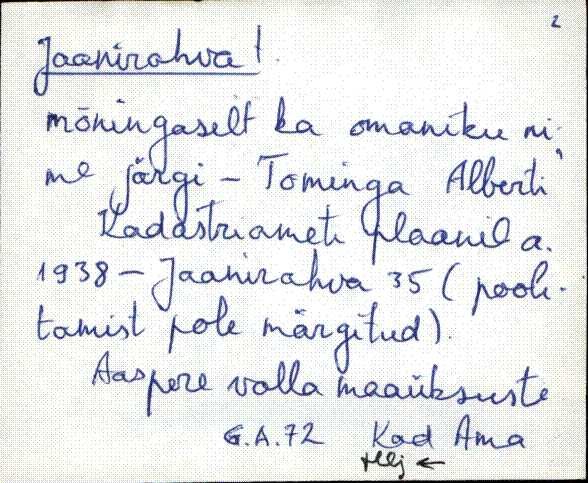 2
Jaanirahva!
mõningaselt ka omaniku ni-
me järgi – Tominga Alberti
Kadastriameti plaanil a.
1938 – Jaanirahva 35 (pooli-
tamist pole märgitud).
Aaspere valla maaüksuste
G.A.72 Kad Ama
Hlj ←